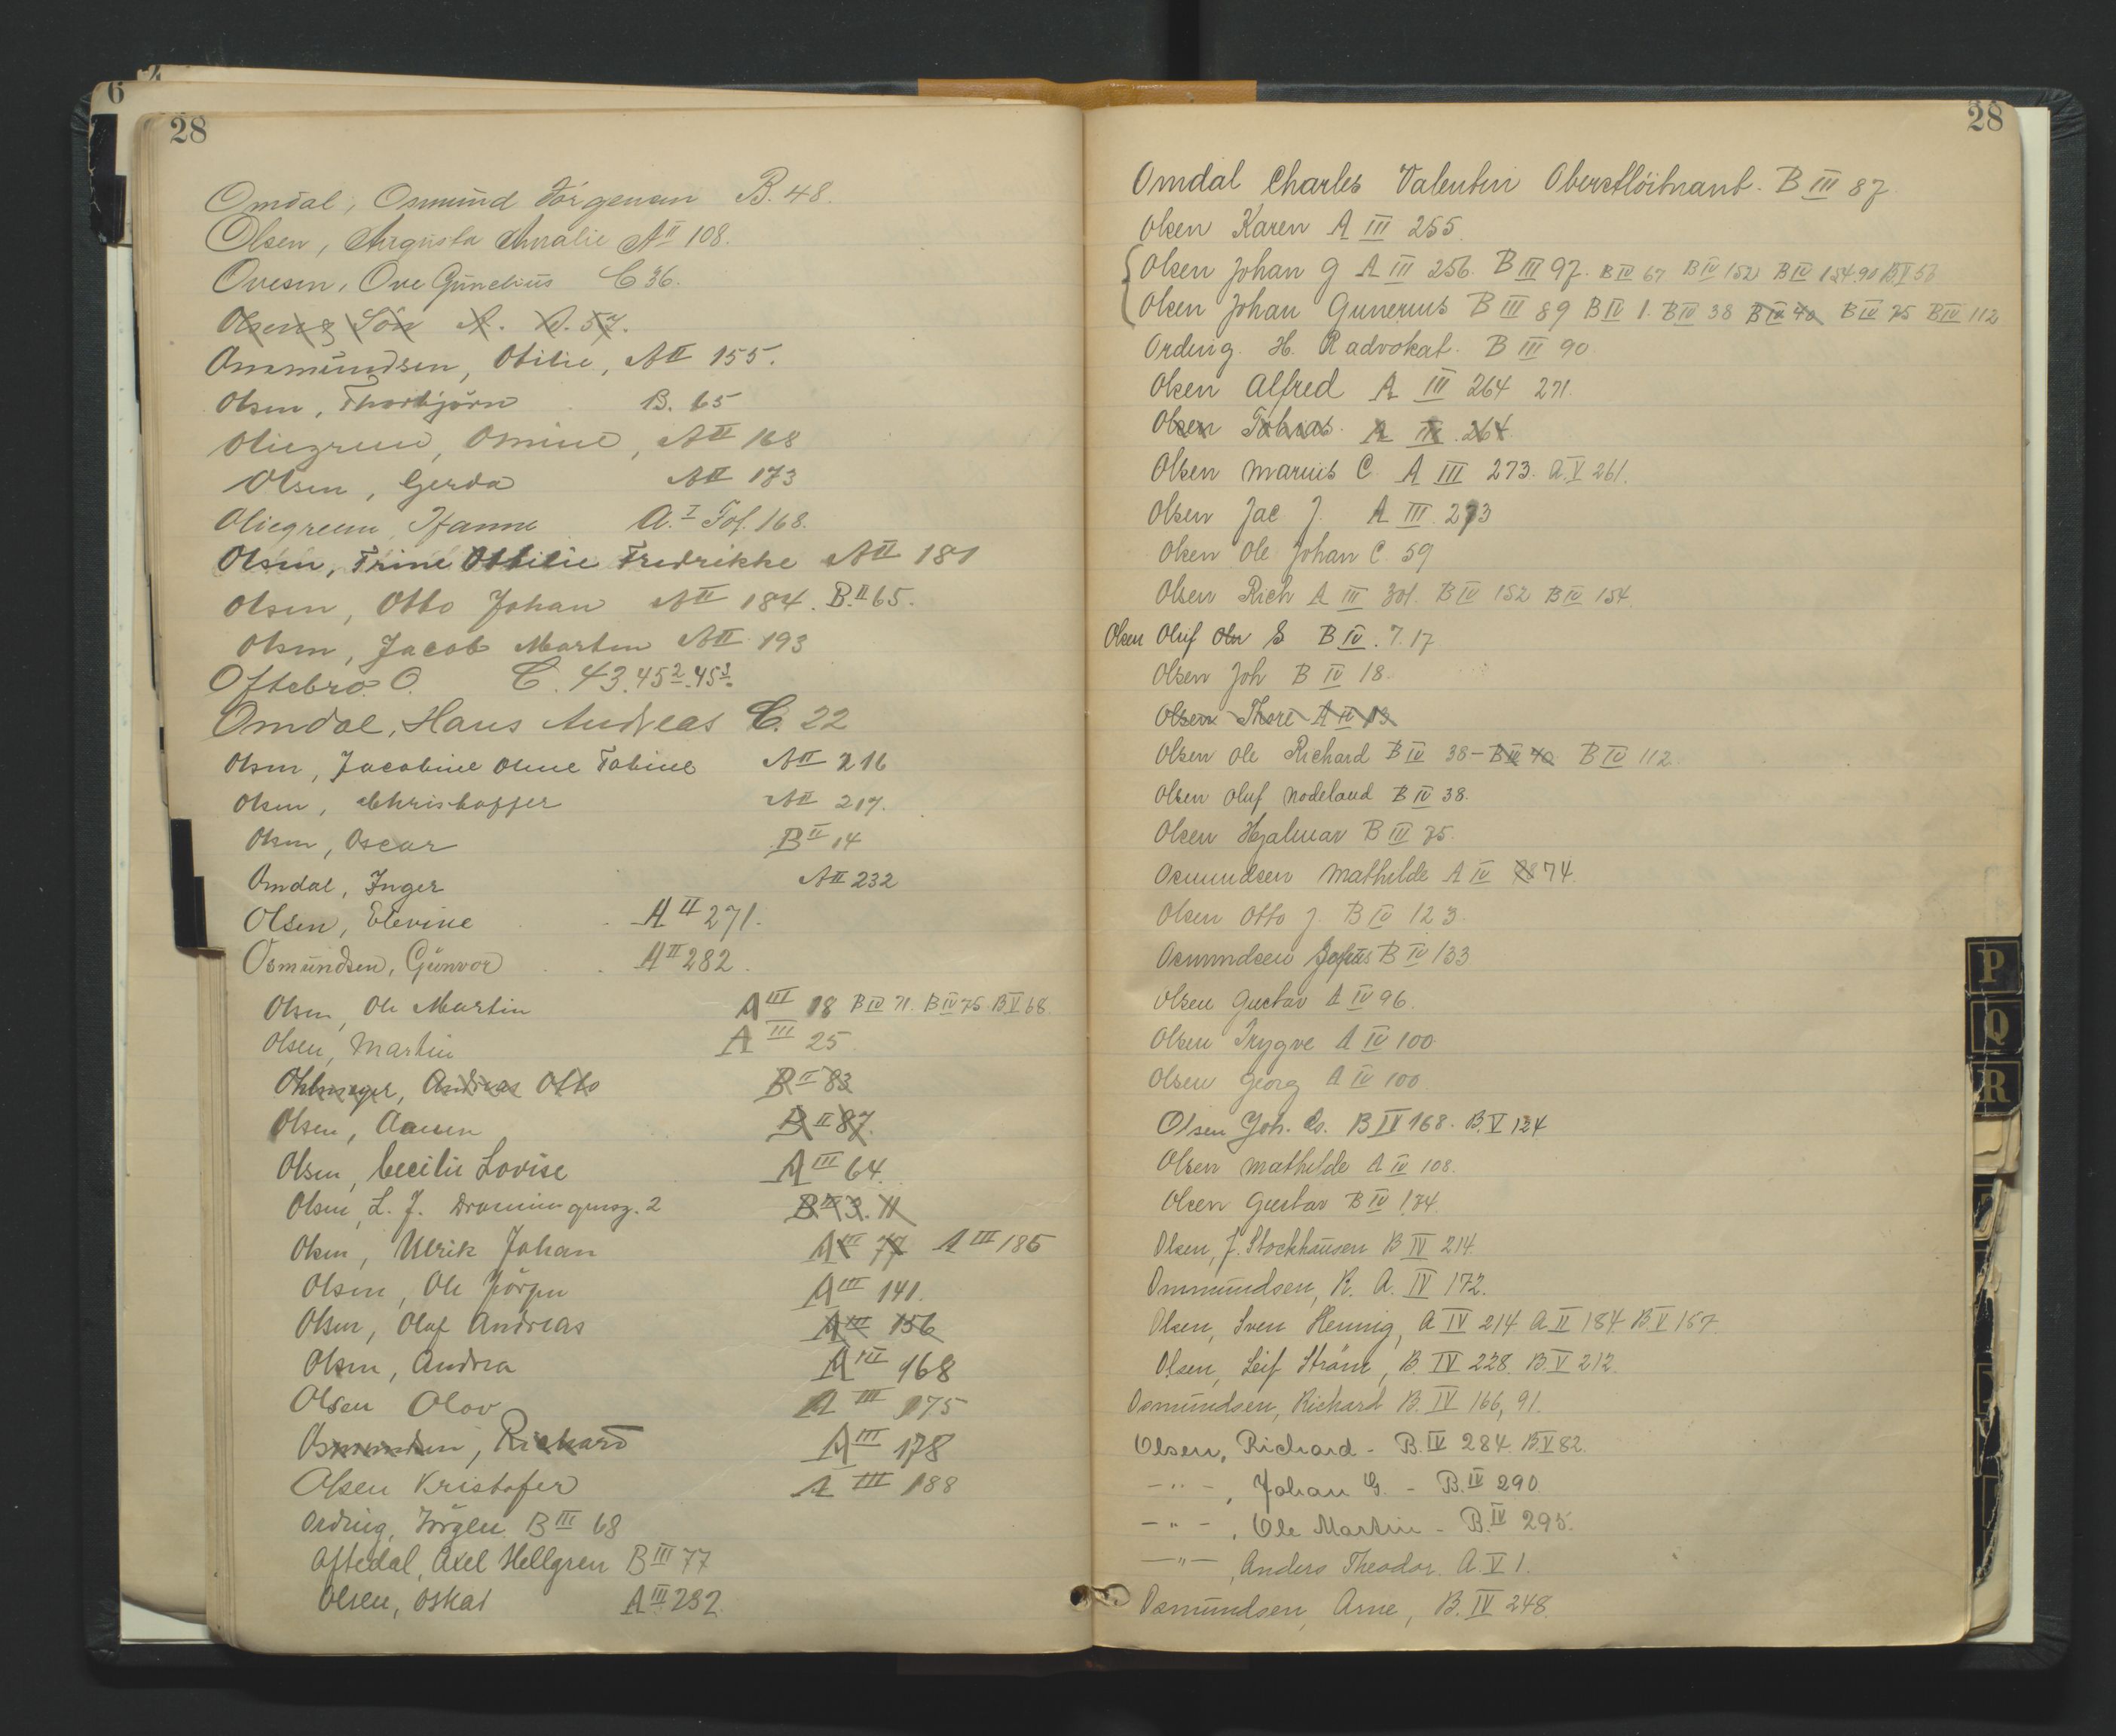 6
28
Omdal, Osmund Jörgensen B. 48.
Olsen, Augusta Amalie A II 108.
Ovesen, Ove Gunelius C 36.
Olsen & Sön A. A. 57.
Ommundsen, Otilie, A II 155.
Olsen, Thorbjörn B. 65
Oliegreen, Osmine, A II 168
Olsen, Gerda A II 173
Oliegreen, Hanna A. I Fol. 168.
Olsen, Trine Ottilie Fredrikke A II 181
Olsen, Otto Johan A II 184. B. II 65.
Olsen, Jacob Martin A II 193
Oftebro O. C. 43. 45 2. 45 3.
Omdal, Hans Andreas C. 22
Olsen, Jacobine Oline Tobine A II 216
Olsen, Christoffer A II 217.
Olsen, Oscar B II 14
Omdal, Inger A II 232
Olsen, Elevine A II 271.
Osmundsen, Gunvor A II 282.
Olsen, Ole Martin A III 18 B IV 71. B IV 75. B V 68.
Olsen, Martin A III 25
Ohlmeyer, Andreas Otto B II 83
Olsen, Aanen B II 87.
Olsen, Cecilie Lovise A III 64.
Olsen, L. J. Dronningensg. 2 B II 3. 11
Olsen, Ulrik Johan A III 77 A III 185
Olsen, Ole Jörgen A III 141.
Olsen, Olaf Andreas A III 156
Olsen, Andrea A III 168
Olsen Olav A III 175
Osmundsen, Richard A III 178
Olsen Kristofer A III 188
Ording, Jörgen B III 68
Oftedal, Axel Hellgren B III 77
Olsen, Oskar A III 232.
28
Omdal Charles Valentin Oberstlöitnant. B III 87
Olsen Karen A III 255.
Olsen Johan G A III 256. B III 97. B IV 67 B IV 152 B IV 154.90 B.V 53
Olsen Johan Gunerius B III 89 B IV 1. B IV 38 B IV 40 B IV 75 B IV 112
Ording. H. R advokat. B III 90.
Olsen Alfred A III 264 271.
Olsen Tobias. A III 264.
Olsen Marius C. A III 273. A. V 261.
Olsen Jac J. A III. 273
Olsen Ole Johan C. 59
Olsen Rich A III 301. B IV 152 B IV 154.
Olsen Oluf Oln S B IV. 7. 17
Olsen Joh B IV 18.
Olsen Thore A IV 13
Olsen Ole Richard B IV 38 - B IV 40 B IV 112.
Olsen Oluf Nodeland B IV 38.
Olsen Hjalmar B III 75.
Osmundsen Mathilde A IV 74.
Olsen Otto J. B IV 123.
Osmundsen B IV 133
Olsen Gustav A IV 96.
Olsen Trygve A IV 100.
Olsen Georg A IV 100.
Olsen Joh. B IV 168. B. V 124
Olsen Mathilde A IV 108.
Olsen Gustav B IV 174.
Olsen, J. Stockhausen B IV 214.
Ommundsen, K. A. IV 172.
Olsen, Sven Hennig, A IV 214 A II 184 B V 157.
Olsen, Leif Ström, B. IV 228. B. V 212.
Osmundsen, Richard B. IV 166, 91.
Olsen, Richard - B. IV 284. B.V 82.
- " - , Johan G. - B. IV 290
- " - , Ole Martin - B. IV 295.
- " - , Anders Theodor. A. V 1.
Osmundsen, Arne, B. IV 248.
P
Q
R